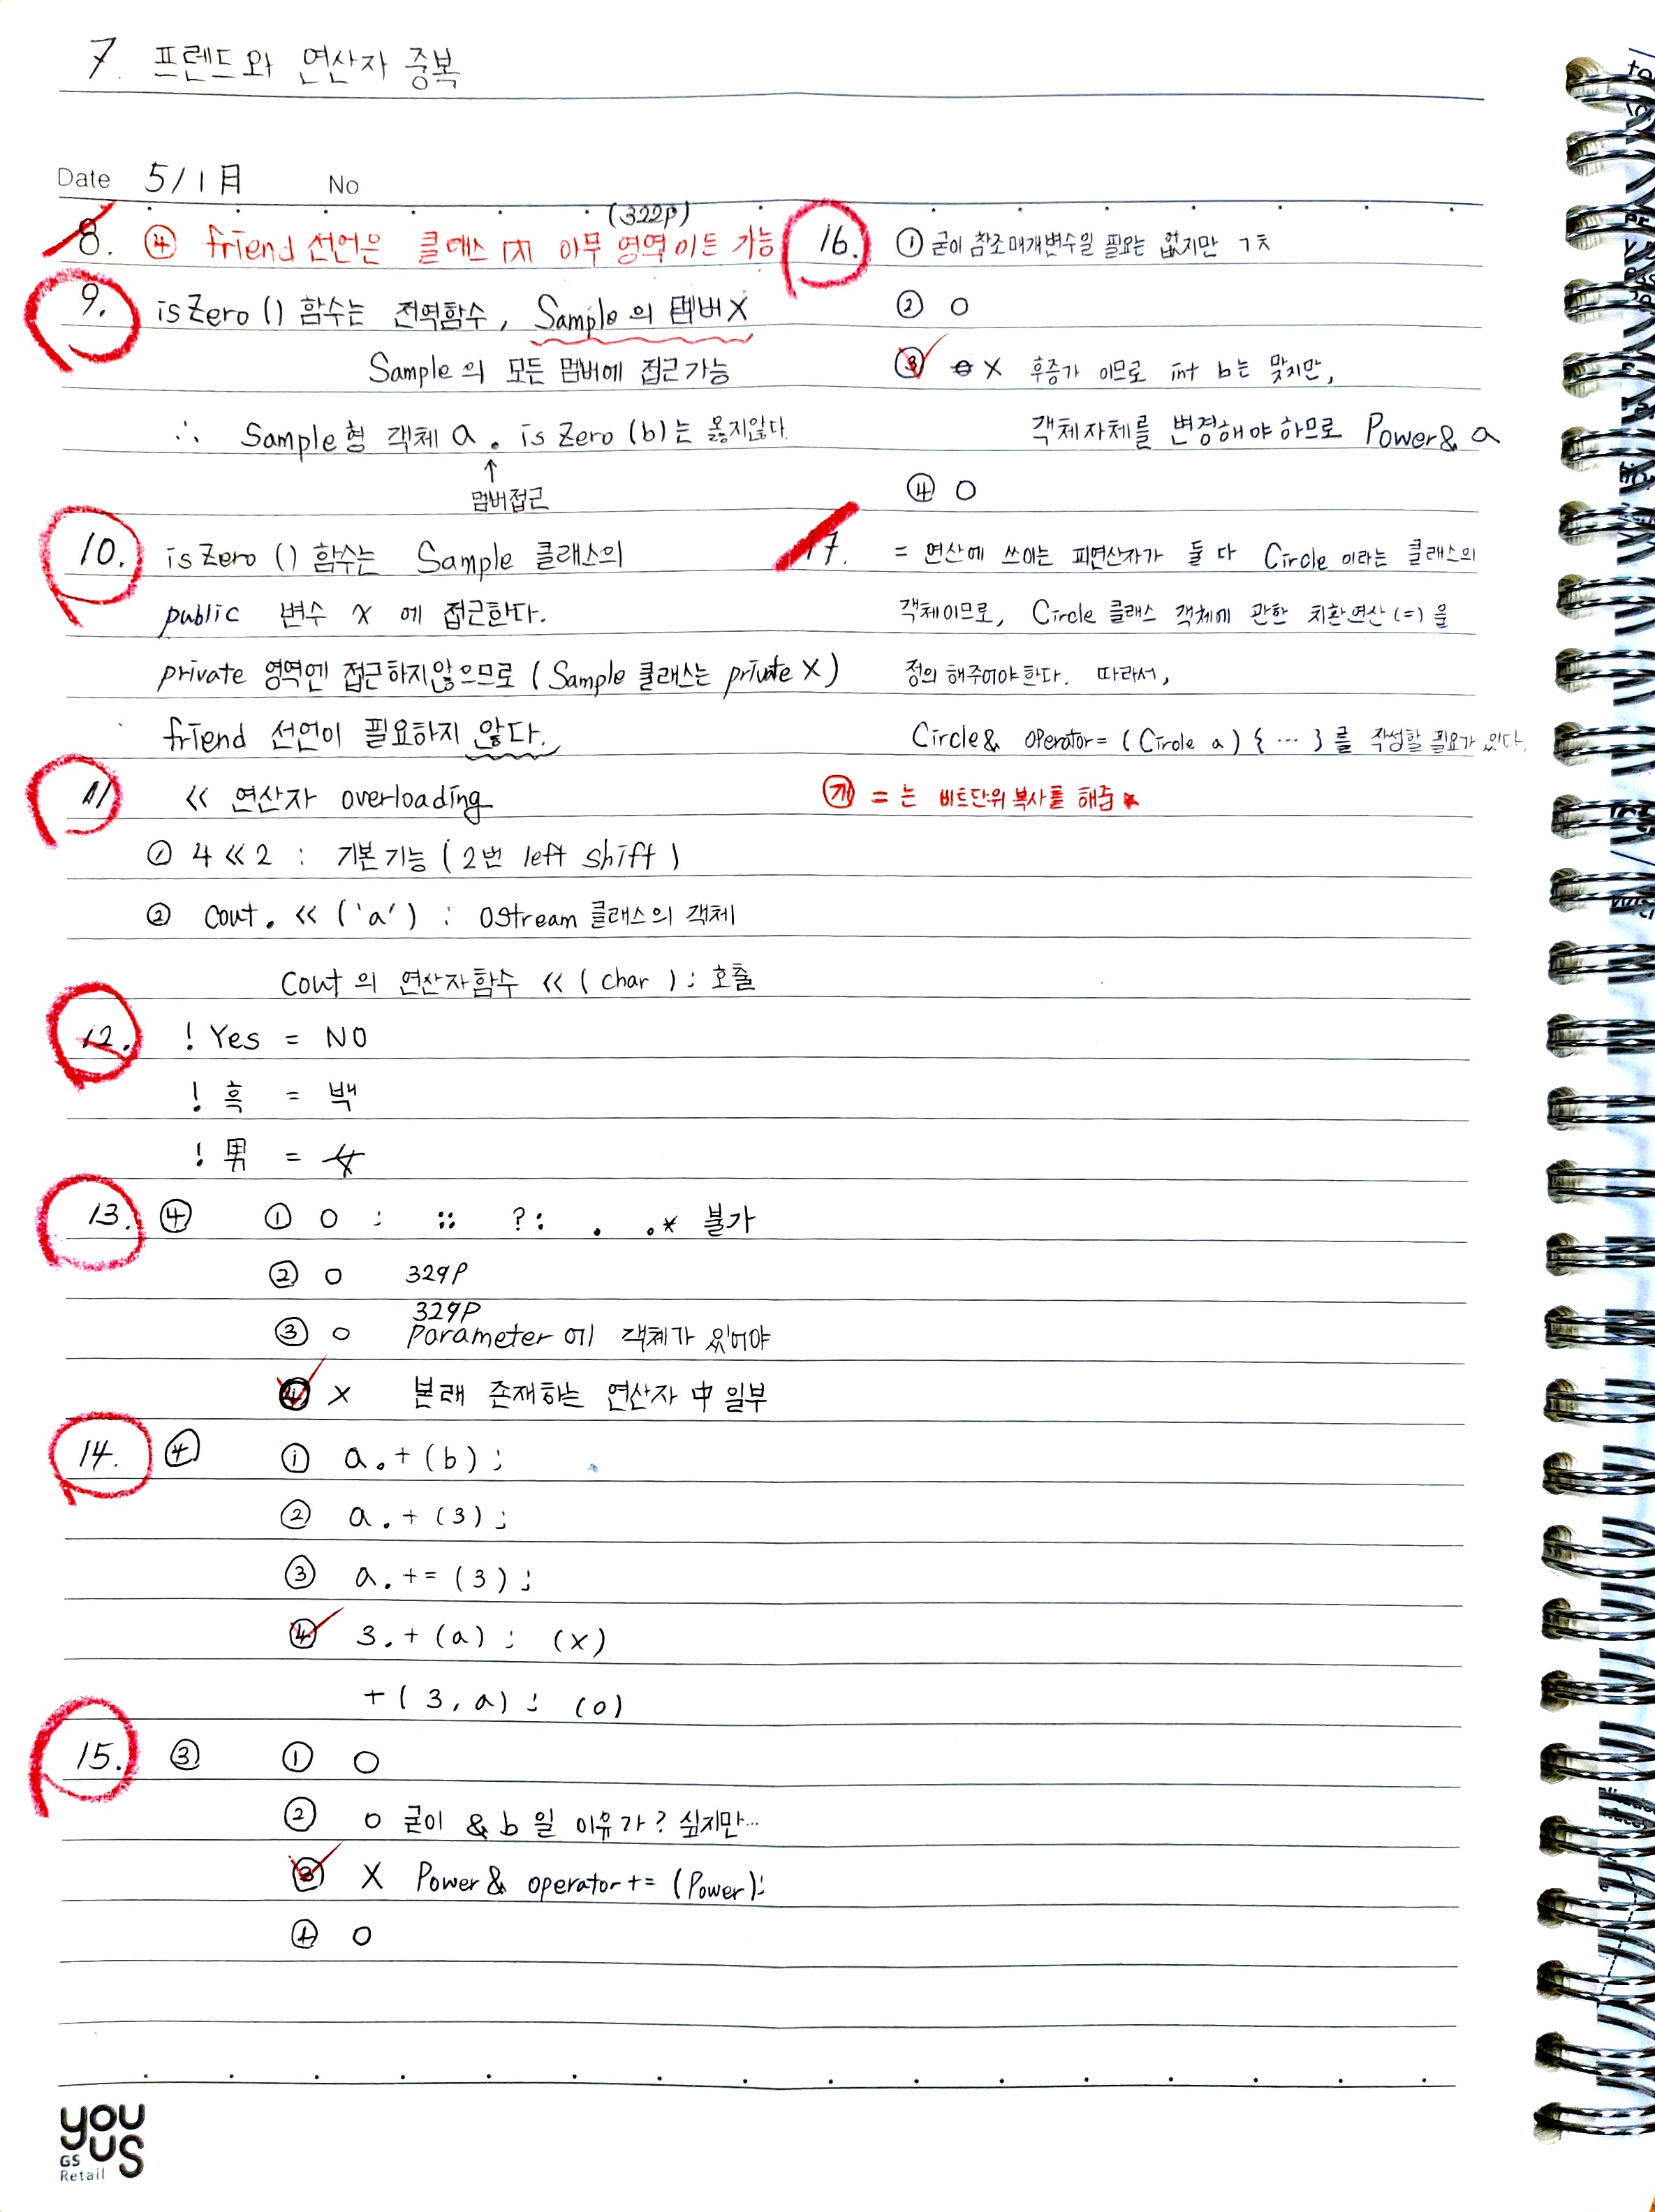 7. 프렌드와 연산자 중복
Date 5/1 月 No
(322p)
8. ④ friend 선언은 클래스 內 아무 영역이든 가능
9. isZero () 함수는 전역함수, Sample 의 멤버X
Sample 의 모든 멤버에 접근가능
∴ Sample형 객체 a . is Zero (b)는 옳지않다.
↑
멤버접근
10. isZero () 함수는 Sample 클래스의
public 변수 x 에 접근한다.
private 영역엔 접근하지않으므로 (Sample 클래스는 private X)
friend 선언이 필요하지 않다.
11 << 연산자 overloading
① 4 << 2 : 기본기능 (2번 left shift)
② Cout . << ('a') : Ostream 클래스의 객체
Cout 의 연산자함수 << (char); 호출
12. ! Yes = NO
! 흑 = 백
! 男 = 女
13. ④ ① O : :: ?: . .* 불가
② O 329P
329P
③ O Parameter 에 객체가 있어야
④ X 본래 존재하는 연산자 中 일부
14. ④ ① a.+(b);
② a.+(3);
③ a.+=(3);
④ 3.+(a); (X)
+(3,a); (O)
15. ③ ① O
② O 굳이 &b 일 이유가? 싶지만…
③ X Power& operator+= (Power);
④ O
16. ① 굳이 참조매개변수일 필요는 없지만 ㄱㅊ
② O
③ X 후증가 이므로 int b는 맞지만,
객체자체를 변경해야하므로 Power& a
④ O
17. = 연산에 쓰이는 피연산자가 둘 다 Circle 이라는 클래스의
객체이므로, Circle 클래스 객체에 관한 치환연산(=)을
정의 해주어야한다. 따라서,
Circle& operator= (Circle a) { … } 를 작성할 필요가 있다.
= 는 비트단위 복사를 해줌 ★
you
us
GS
Retail